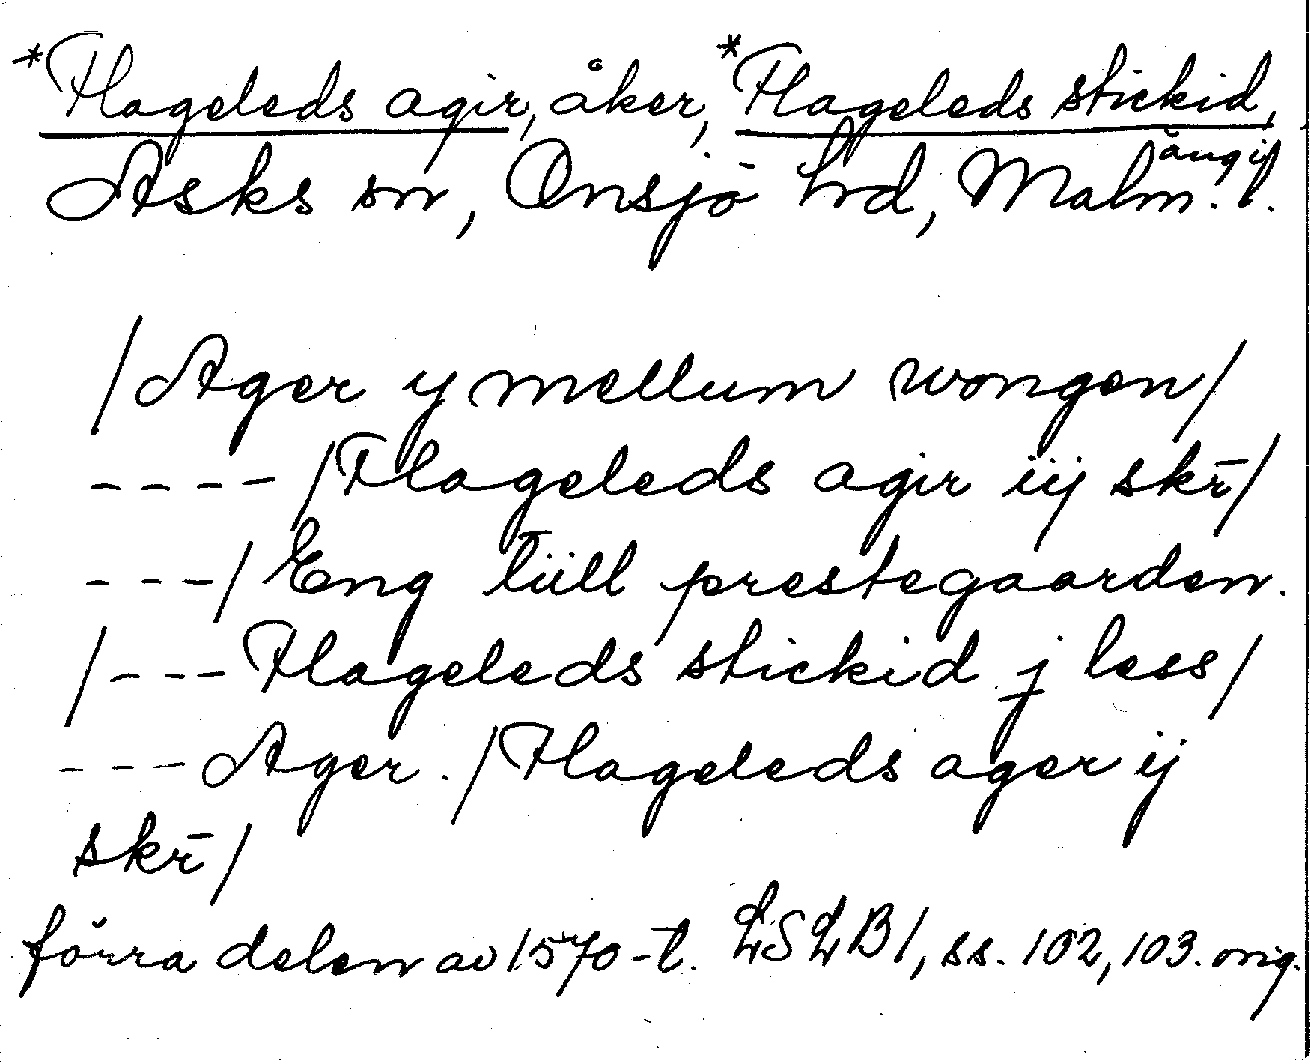 *Flageleds agir, åker, *Flageleds stickid,
äng if
Asks sn, Onsjö hd, Malm. l.
/Ager y mellum wongen/
---- /Flageleds agir iij skr̄/
---/ Eng tiill prestegaarden.
/---Flageleds stickid j less/
---Ager. /Flageleds ager ij
skr̄/
förra delen av 1570-t. LSLB1, ss. 102, 103. orig.